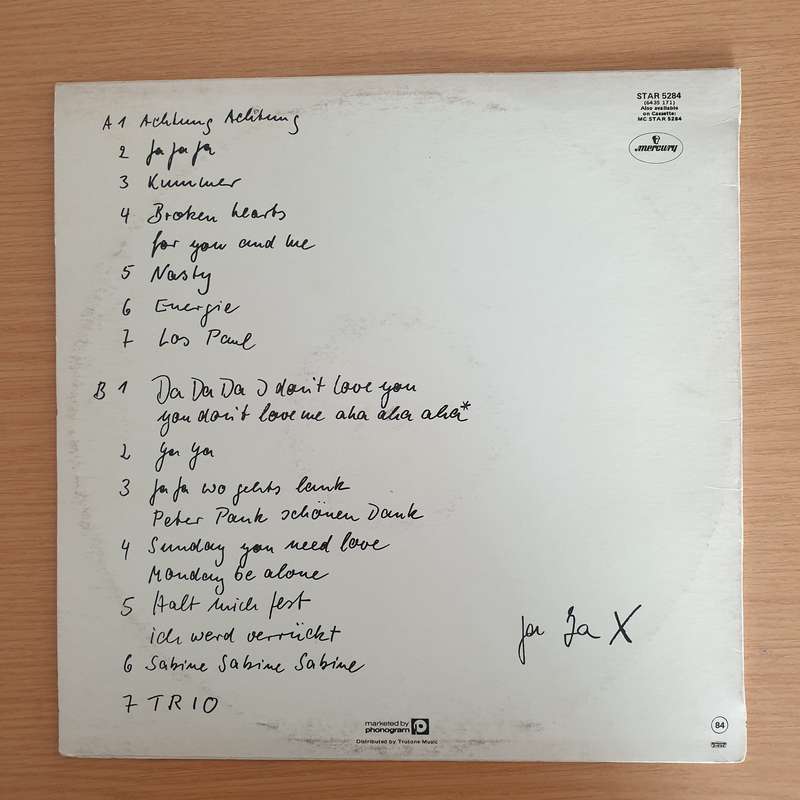 STAR 5284
(6435 171)
Also available
on Cassette:
MC STAR 5284
mercury
A 1 Achtung Achtung
2 Ja Ja Ja
3 Kummer
4 Broken hearts
for you and me
5 Nasty
6 Energie
7 Los Paul
B 1 Da Da Da I don't love you
you don't love me aha aha aha*
2 Ya Ya
3 Ja Ja wo gehts lank
Peter Pank schönen Dank
4 Sunday you need love
Monday be alone
5 Halt mich fest
ich werd verrückt
6 Sabine Sabine Sabine
7 TRIO
Ja Ja X
marketed by
phonogram
Distributed by Trutone Music
84